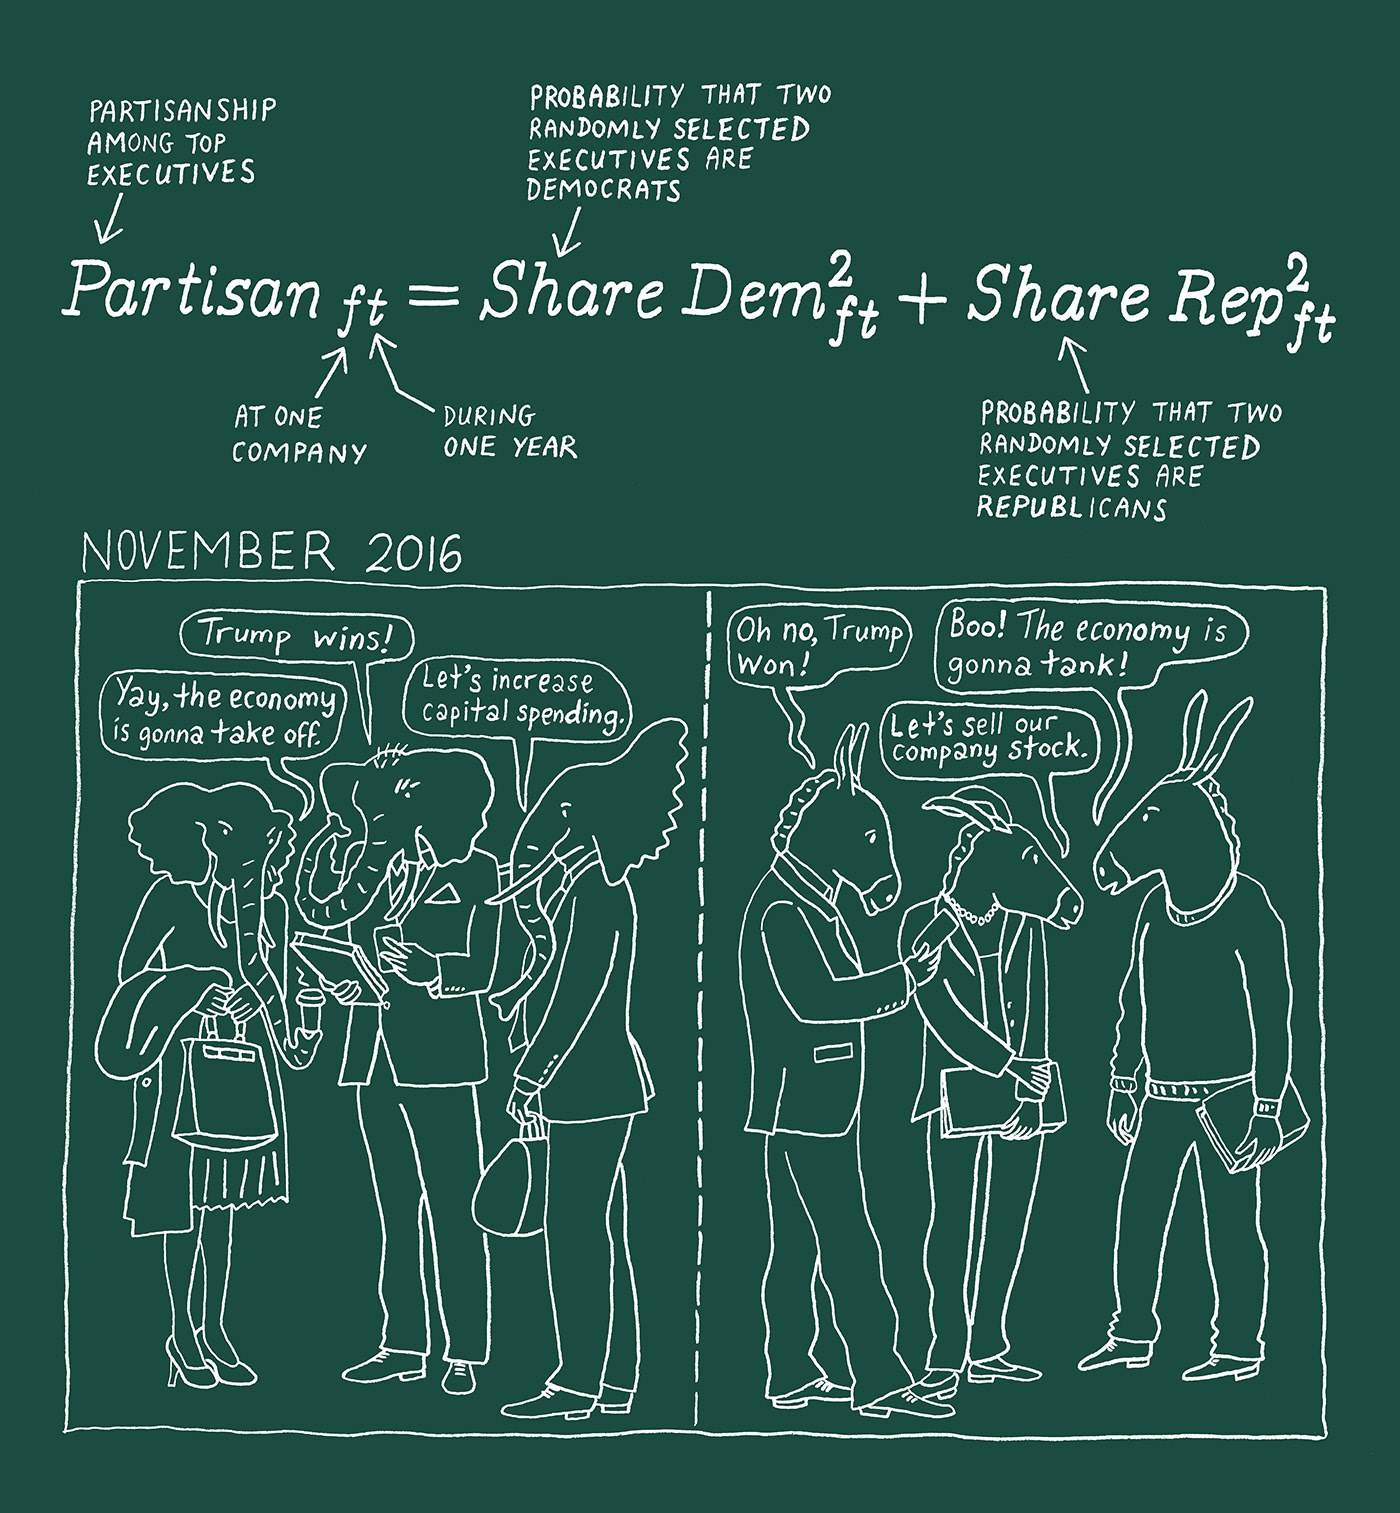 PARTISANSHIP
AMONG TOP
EXECUTIVES
PROBABILITY THAT TWO
RANDOMLY SELECTED
EXECUTIVES ARE
DEMOCRATS
Partisan ft = Share Dem²ft + Share Rep²ft
AT ONE
COMPANY
DURING
ONE YEAR
PROBABILITY THAT TWO
RANDOMLY SELECTED
EXECUTIVES ARE
REPUBLICANS
NOVEMBER 2016
Trump wins!
Yay, the economy
is gonna take off.
Let's increase
capital spending.
Oh no, Trump
won!
Boo! The economy is
gonna tank!
Let's sell our
company stock.